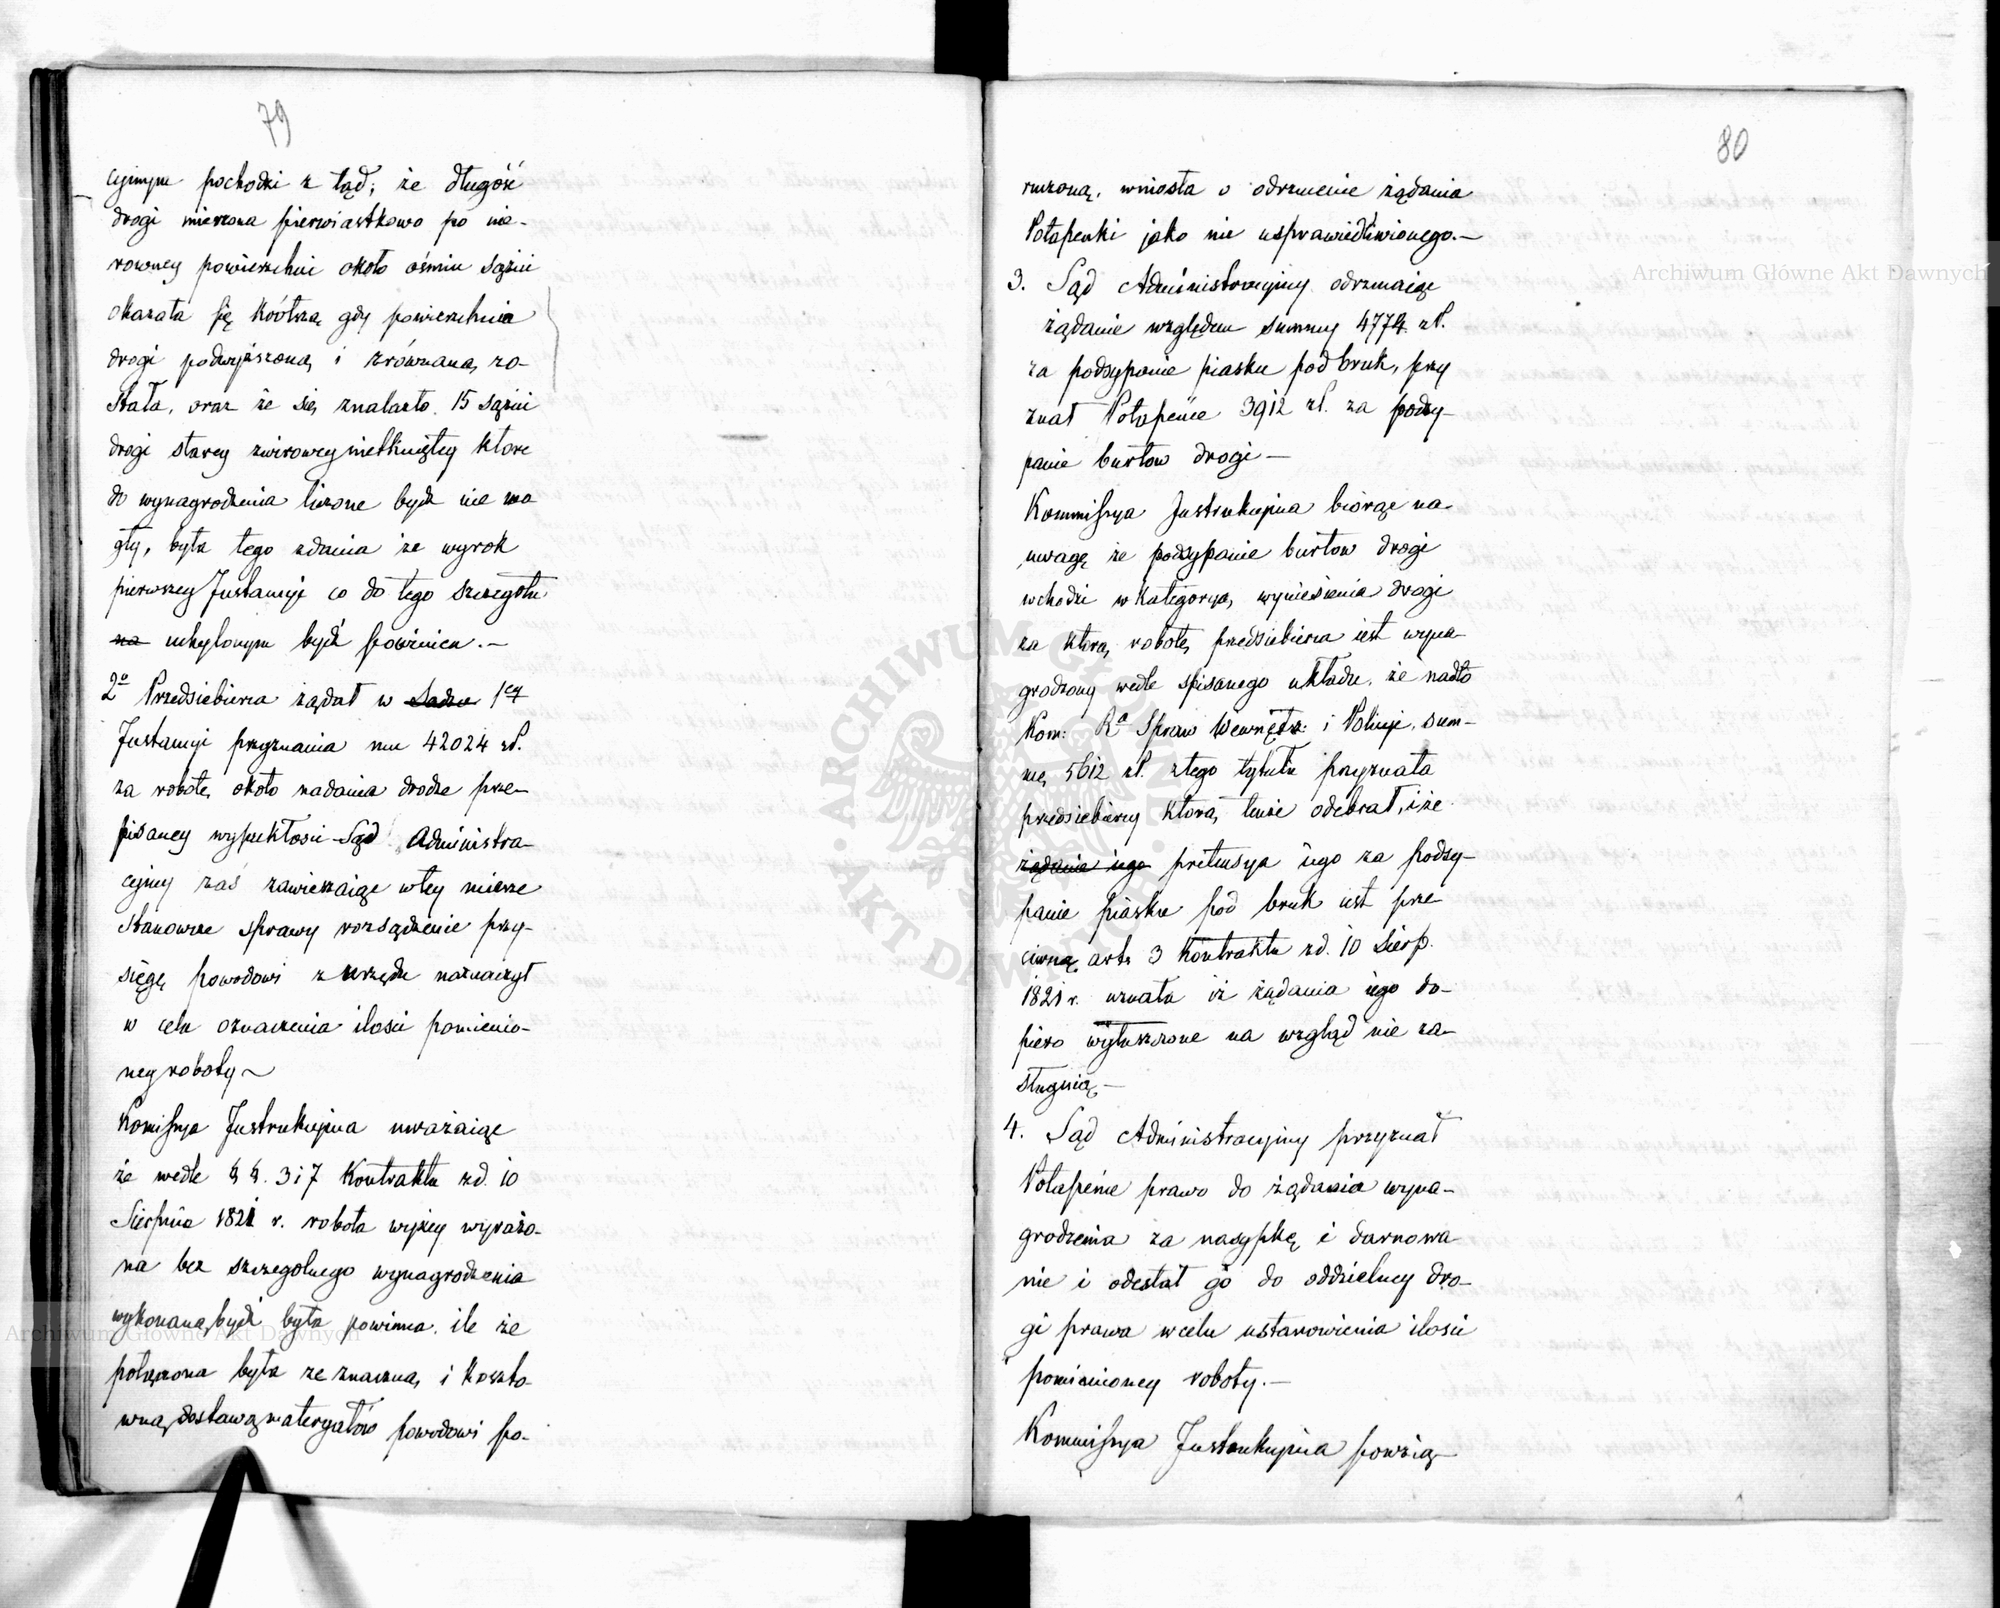 79
cyjnym pochodzi z tąd, że długość
drogi mierzona pierwiastkowo po nie-
rowney powierzchni około ośmiu sążni
okazała się krótszą gdy powierzchnia
drogi podwyższoną i zrównaną zo-
stała, oraz że się znalazło 15 sążni
drogi starey zwirowey nietkniętey ktore
do wynagrodzenia liczone bydz nie mo
gły, była tego zdania że wyrok
pierwszey Instancyi co do tego szczegołu
na uchylonym bydź powinien.—
2o Przedsiebierca żądał w Sadzie 1ey
Instancyi przyznania mu 42024 zł.
za robotę około nadania drodze prze-
pisaney wypukłosci Sąd Administra-
cyjny zaś zawieszaiąc w tey mierze
stanowcze sprawy rozsądzenie przy-
sięgę powodowi z urzędu naznaczył
w celu oznaczenia ilosci pomienio-
ney roboty—
Komissya Instrukcyjna uważaiąc
że wedle §§. 3 i 7 Kontraktu zd. 10
Sierpnia 1821 r. robota wyżey wyrażo-
na bez szczegolnego wynagrodzenia
wykonaną bydź była powinna, ile że
połączona była ze znaczną i koszto-
wną dostawą materyałów powodowi po-
80
ruczoną, wniosła o odrzucenie żądania
Potapenki jako nie usprawiedliwionego.—
3. Sąd Administracyjny odrzucaiąc
żądanie względem summy 4774 zł.
za podsypanie piasku pod bruk, przy
znał Potapence 3912 zł. za podsy-
panie burtow drogi—
Kommissya Instrukcyjna biorąc na
uwagę że podsypanie burtow drogi
wchodzi w kategoryą wyniesienia drogi
za ktorą robotę przedsiebierca iest wyna-
grodzony wedle spisanego układu, że nadto
Kom: Ra Spraw Wewnętz: i Policyi, sum-
mę 5612 zł. z tego tytułu przyznała
przedsiebiercy ktorą tenże odebrał, i że
żądanie iego pretensya iego za podsy-
panie piasku pod bruk iest prze
ciwną art. 3 Kontraktu zd. 10 Sierp.
1821 r. uznała iż żądania iego do-
piero wyłuszczone na wzgląd nie za-
sługuią—
4. Sąd Administracyjny przyznał
Potapence prawo do żądania wyna-
grodzenia za nasypkę i darnowa
nie i odesłał go do oddzielney dro-
gi prawa w celu ustanowienia ilosci
pomienioney roboty.—
Kommissya Instrukcyjna powzią-
Archiwum Główne Akt Dawnych
Archiwum Główne Akt Dawnych
ARCHIWUM GŁÓWNE AKT DAWNYCH